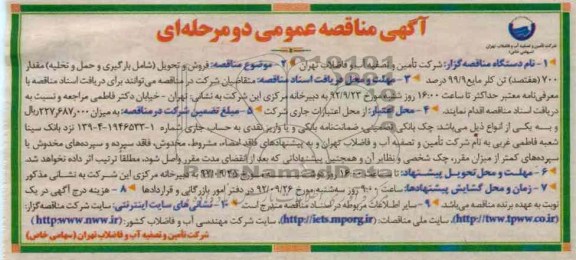 آگهی مناقصه عمومی دو مرحله‌ای
شرکت تأمین و تصفیه آب و فاضلاب تهران
(سهامی خاص)
۱- نام دستگاه مناقصه‌گزار: شرکت تأمین و تصفیه آب و فاضلاب تهران ۲- موضوع مناقصه: فروش و تحویل (شامل بارگیری و حمل و تخلیه) مقدار
۷۰۰ (هفتصد) تن کلر مایع ۹۹/۹ درصد ۳- مهلت و محل دریافت اسناد مناقصه: متقاضیان شرکت در مناقصه می‌توانند برای دریافت اسناد مناقصه با
معرفی‌نامه معتبر حداکثر تا ساعت ۱۶:۰۰ روز شنبه مورخ ۹۲/۹/۲۳ به دبیرخانه مرکزی این شرکت به نشانی: تهران - خیابان دکتر فاطمی مراجعه و نسبت به
دریافت اسناد مناقصه اقدام نمایند ۴- محل اعتبار: از محل اعتبارات جاری شرکت ۵- مبلغ تضمین شرکت در مناقصه: به میزان ۲۲۷,۶۸۷,۰۰۰ ریال
و به یکی از انواع ذیل می‌باشد: چک بانکی تضمینی، ضمانت‌نامه بانکی و یا واریز نقدی به حساب جاری شماره ۱-۱۹۴۶۵۳۳-۴-۱۳۹ نزد بانک سینا
شعبه فاطمی غربی به نام شرکت تأمین و تصفیه آب و فاضلاب تهران و به پیشنهادهای فاقد امضاء، مشروط، مخدوش، فاقد سپرده و سپرده‌های مخدوش یا
سپرده‌های کمتر از میزان مقرر، چک شخصی و نظایر آن و همچنین پیشنهاداتی که بعد از انقضای مدت مقرر واصل شود، مطلقا ترتیب اثر داده نخواهد شد
۶- مهلت و محل تحویل پیشنهاد: تا ساعت ۱۶ دبیرخانه مرکزی این شرکت به نشانی مذکور
۷- زمان و محل گشایش پیشنهادها: ساعت ۹:۰۰ روز سه‌شنبه مورخ ۹۲/۰۹/۲۶ در دفتر امور بازرگانی و قراردادها ۸- هزینه درج آگهی در یک
نوبت به عهده برنده مناقصه می‌باشد ۹- سایر اطلاعات مربوطه در اسناد مناقصه مندرج است ۱۰- نشانی‌های سایت اینترنتی: سایت شرکت مناقصه‌گزار:
(http://tww.tpww.co.ir)، سایت ملی مناقصات: (http://iets.mporg.ir)، سایت شرکت مهندسی آب و فاضلاب کشور: (http:www.nww.ir)
شرکت تأمین و تصفیه آب و فاضلاب تهران (سهامی خاص)